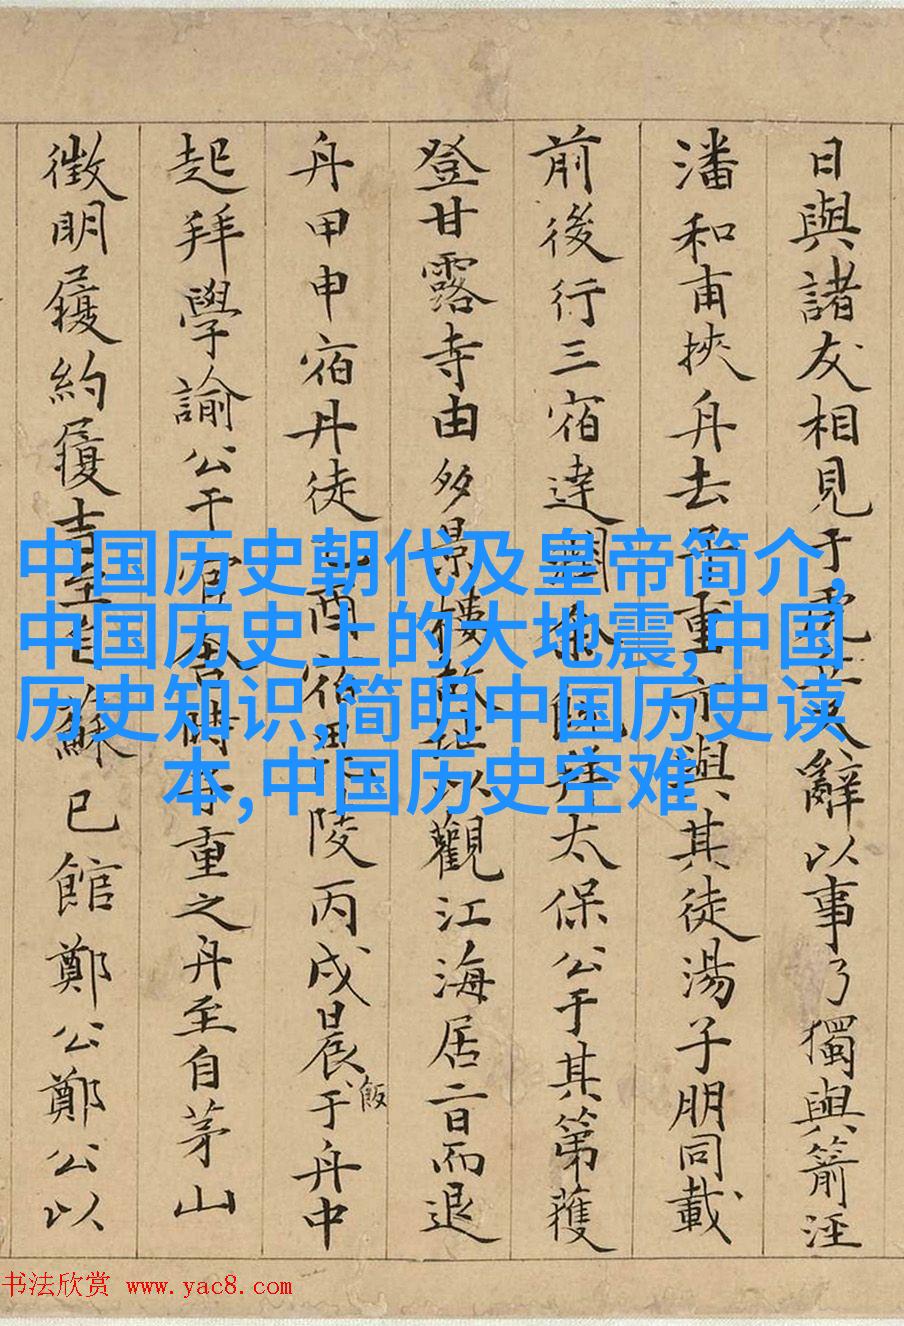 日與諸友相見于虎辭以事乃獨與箭涇
潘和甫挾舟去子重亦與其徒湯子朋同載
前後行三宿達潤太保公于其第獲
登甘露寺由多景樓故址以觀江海居二日而退
舟甲申宿丹徒乙酉宿毘陵丙戌晨飯于舟中
起拜學諭公于官舍時子重之舟至自茅山
徵明履約履吉至自蘇已館鄭公鄭公以
中国历史朝代及皇帝简介,
中国历史上的大地震,中国
历史知识,简明中国历史读
本,中国历史空难
书法欣赏 www.yac8.com